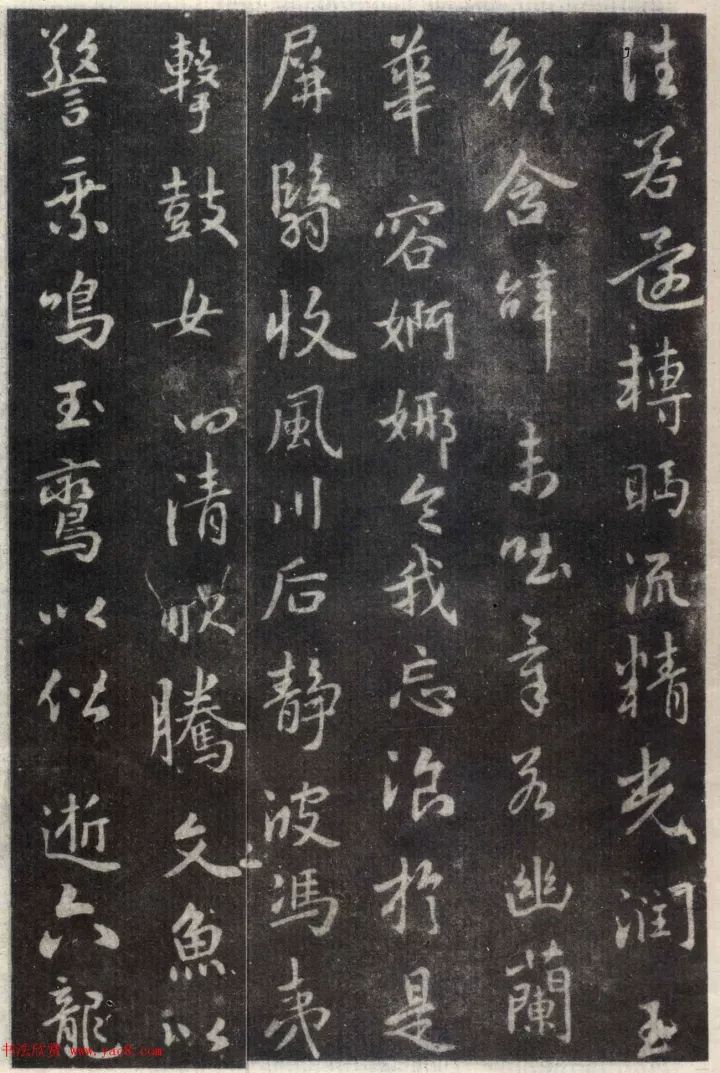 往若還轉眄流精光潤玉
顏含辭未吐氣若幽蘭
華容婀娜令我忘飡於是
屏翳收風川后靜波馮夷
擊鼓女清歌騰文魚以
警乘鳴玉鸞以偕逝六龍
书法欣赏 www.yac8.com